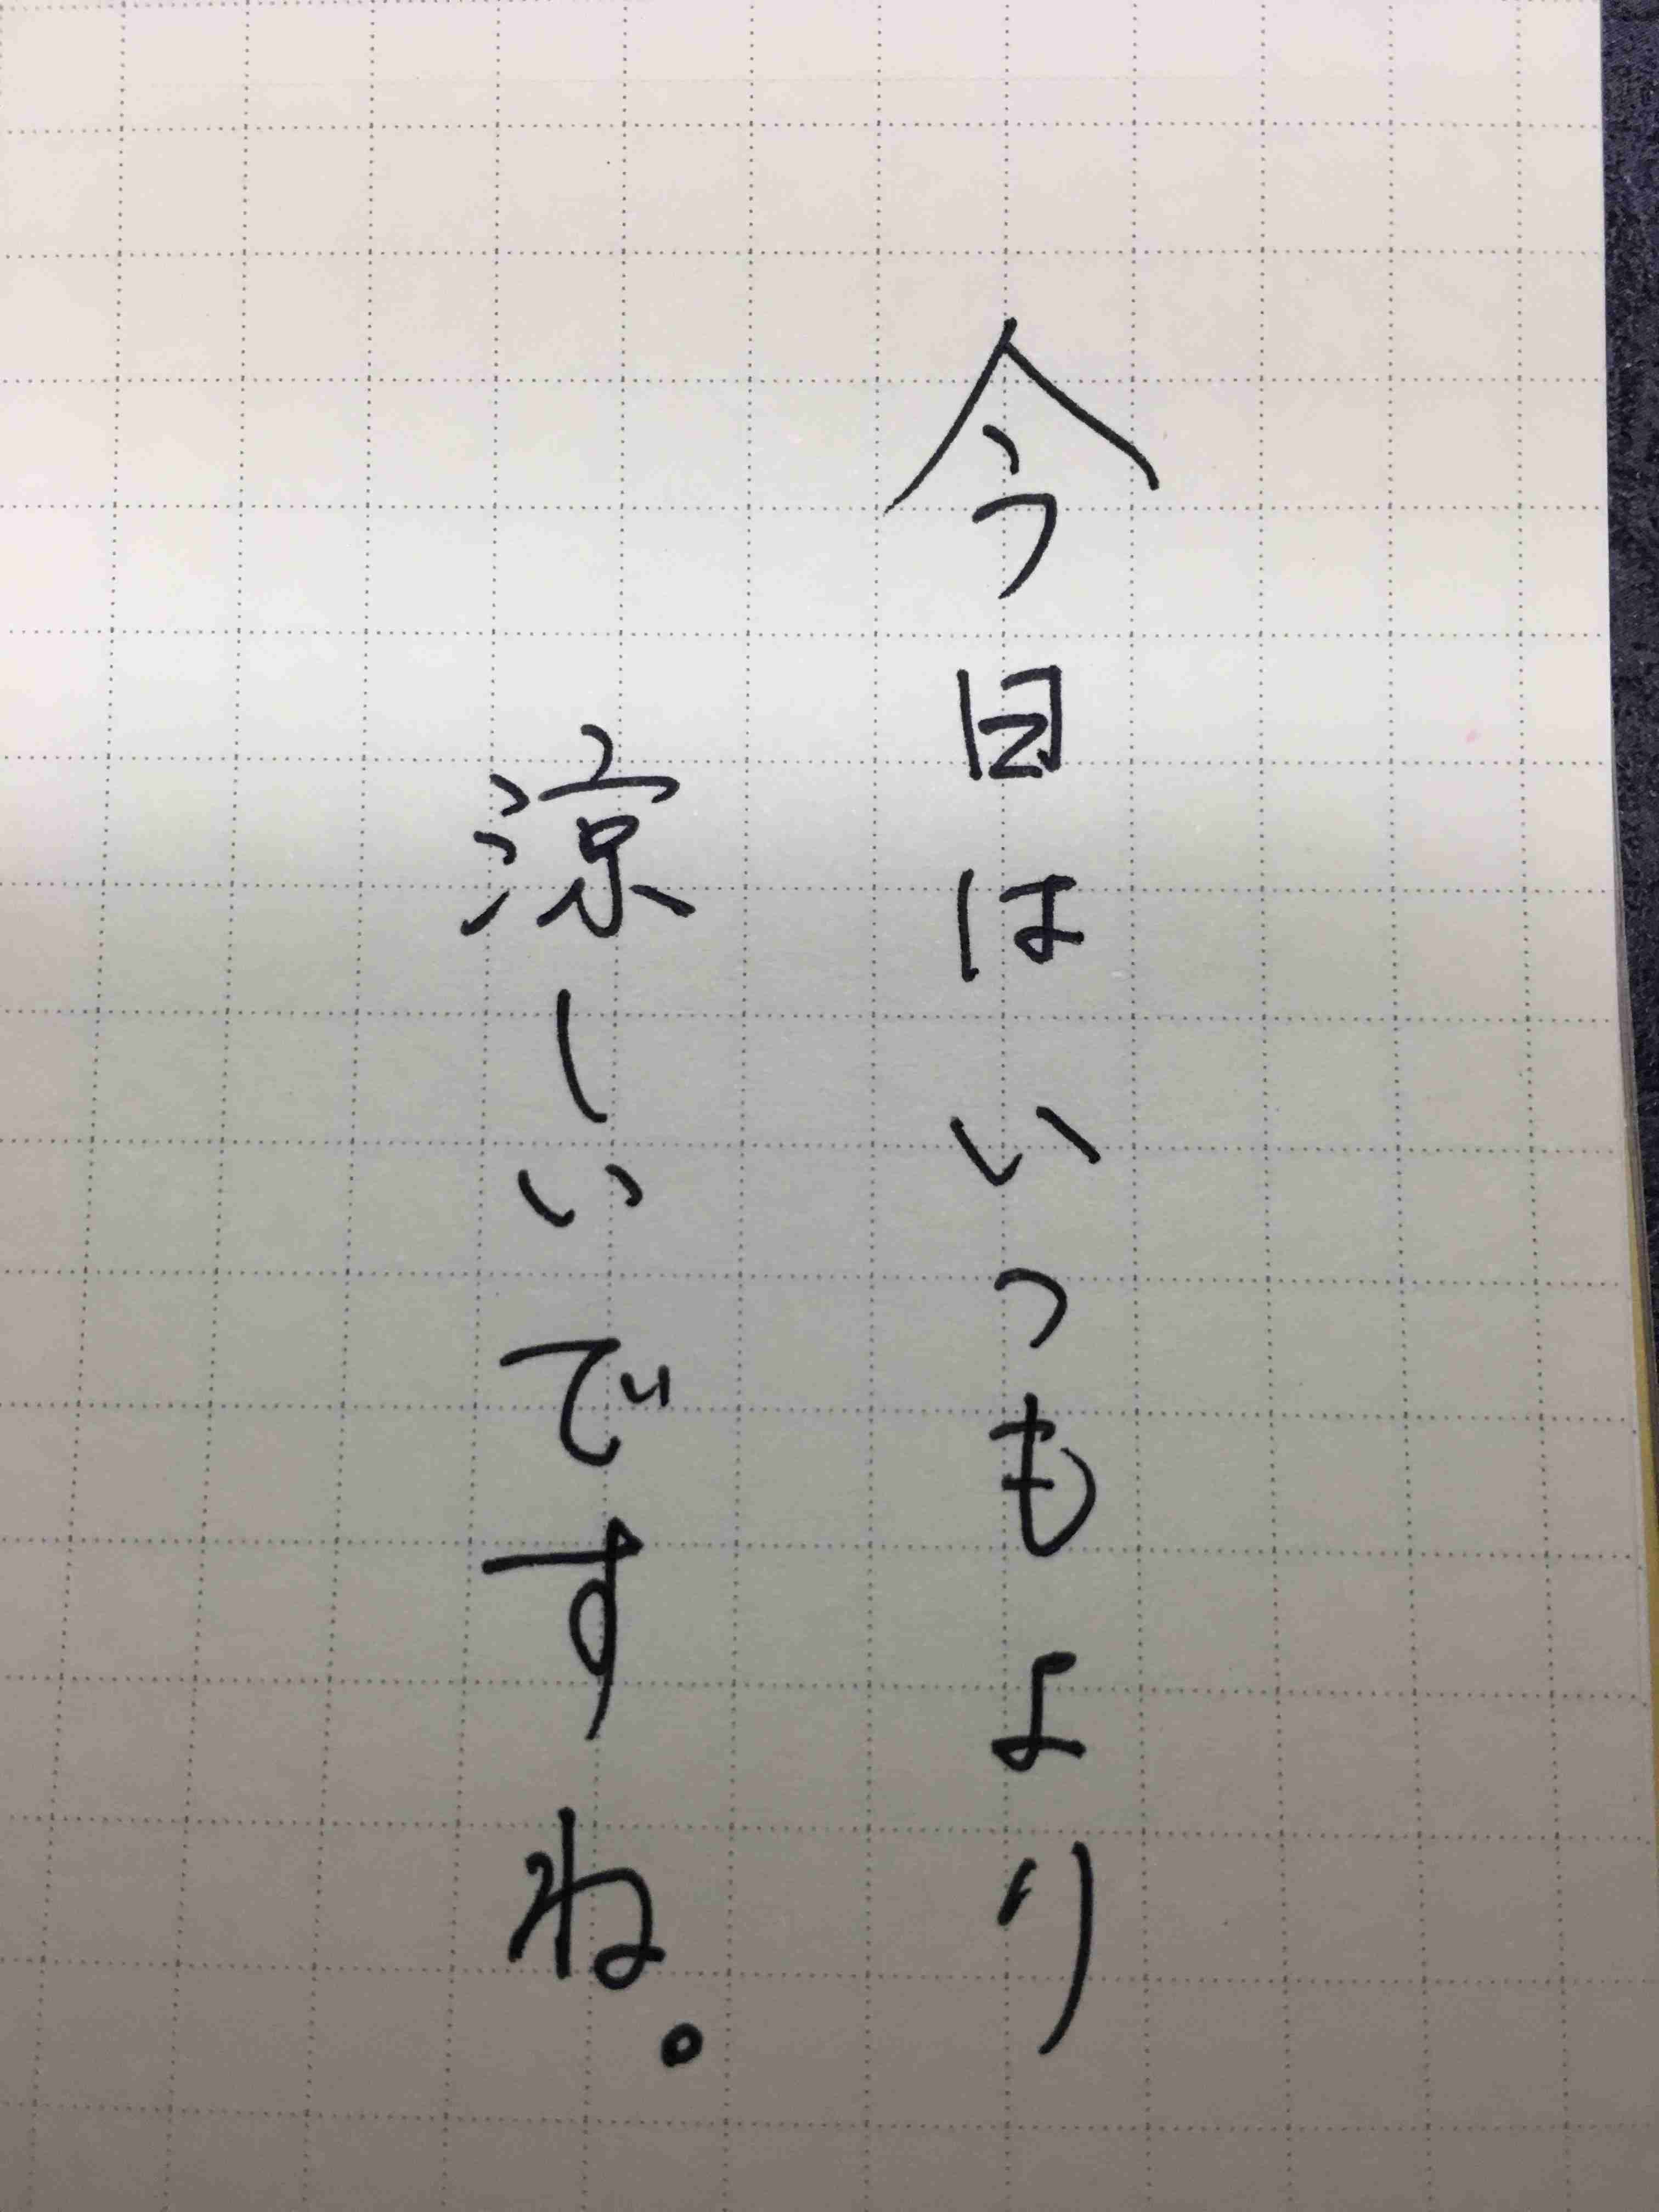 今日はいつもより
涼しいですね。